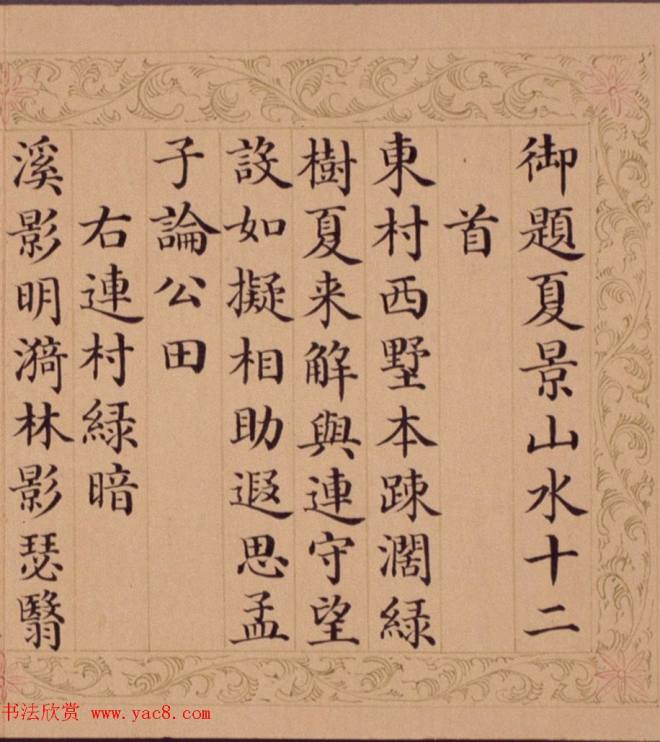 御題夏景山水十二
首
東村西墅本踈濶綠
樹夏来解與連守望
設如擬相助遐思孟
子論公田
右連村綠暗
溪影明漪林影瑟翳
书法欣赏 www.yac8.com